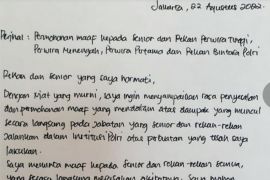 Jakarta, 22 Agustus 2022.
Perihal : Permohonan maaf kepada Senior dan Rekan Perwira Tinggi,
Perwira Menengah, Perwira Pertama dan Rekan Bintara Polri
Rekan dan Senior yang saya hormati,
Dengan niat yang murni, saya ingin menyampaikan rasa penyesalan
dan permohonan maaf yang mendalam atas dampak yang muncul
secara langsung pada jabatan yang senior dan rekan-rekan
jalankan dalam institusi Polri atas perbuatan yang telah saya
lakukan.
Saya meminta maaf kepada senior dan rekan-rekan semua,
yang secara langsung merasakan akibatnya. Saya mohon